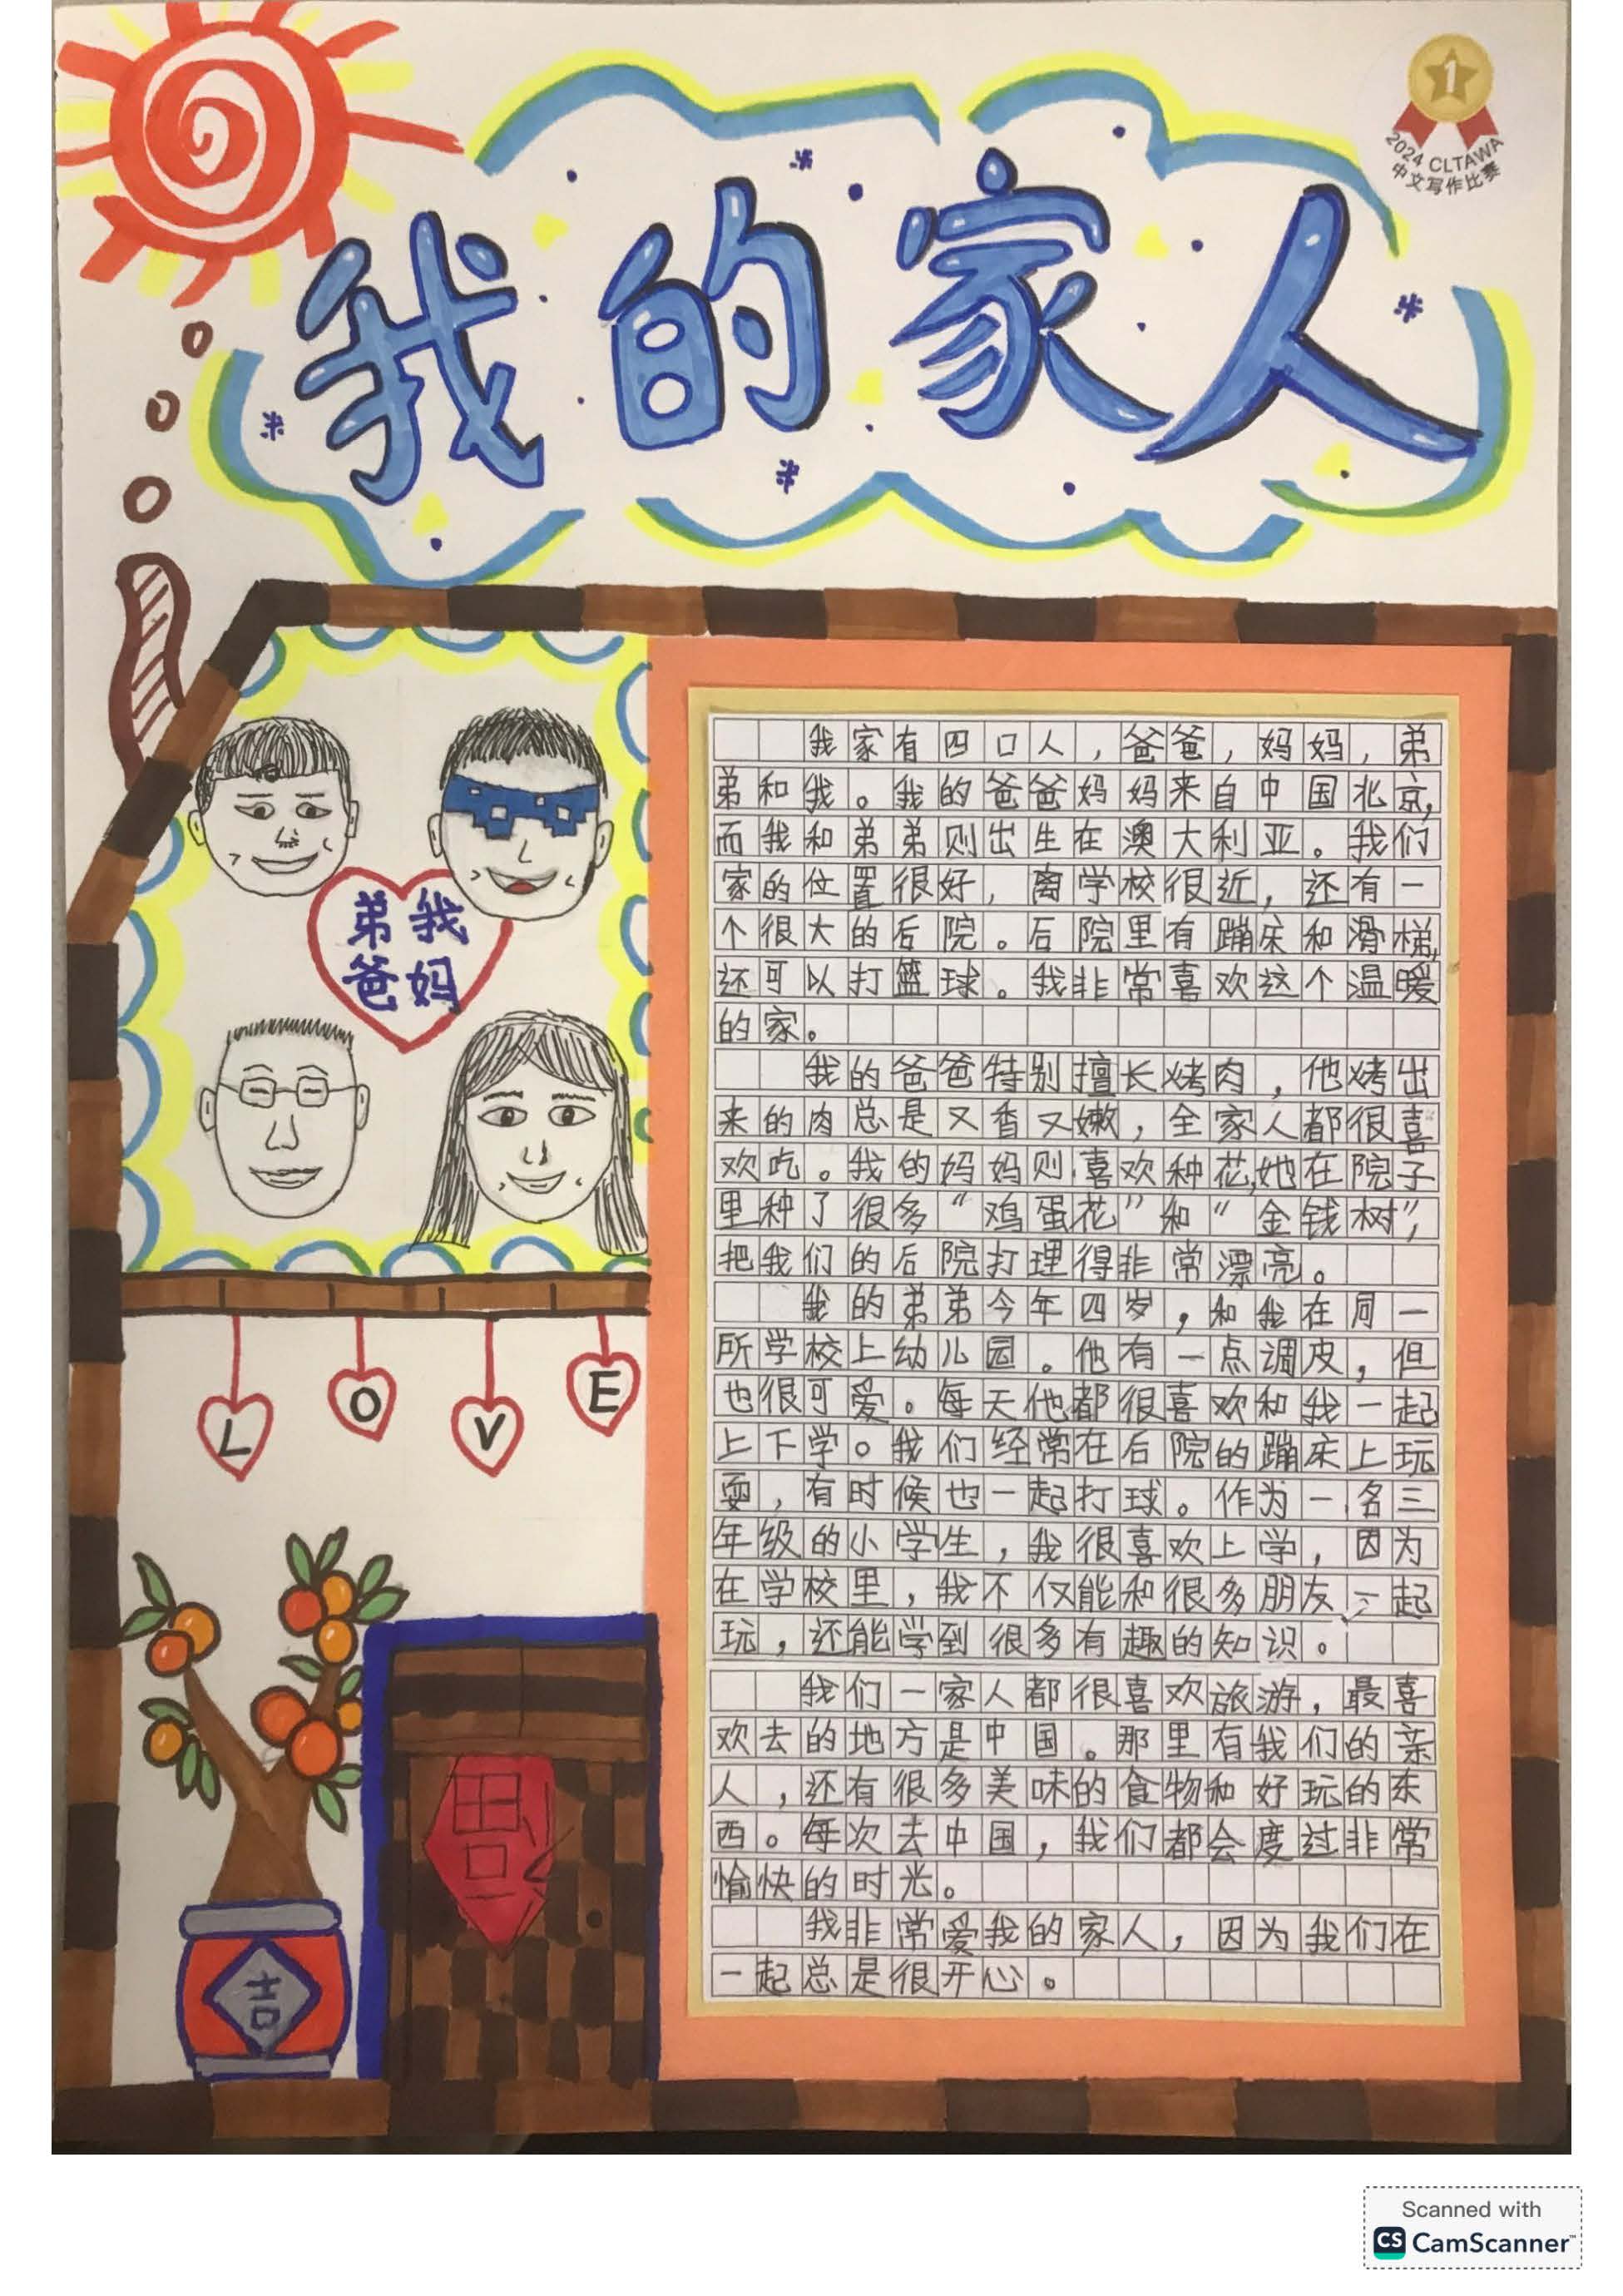 1
2024 CLTAWA
中文写作比赛
我的家人
弟我
爸妈
我家有四口人，爸爸，妈妈，弟
弟和我。我的爸爸妈妈来自中国北京，
而我和弟弟则出生在澳大利亚。我们
家的位置很好，离学校很近，还有一
个很大的后院。后院里有蹦床和滑梯，
还可以打篮球。我非常喜欢这个温暖
的家。
我的爸爸特别擅长烤肉，他烤出
来的肉总是又香又嫩，全家人都很喜
欢吃。我的妈妈则喜欢种花，她在院子
里种了很多“鸡蛋花”和“金钱树”，
把我们的后院打理得非常漂亮。
我的弟弟今年四岁，和我在同一
所学校上幼儿园。他有一点调皮，但
也很可爱。每天他都很喜欢和我一起
上下学。我们经常在后院的蹦床上玩
耍，有时候也一起打球。作为一名三
年级的小学生，我很喜欢上学，因为
在学校里，我不仅能和很多朋友一起
玩，还能学到很多有趣的知识。
我们一家人都很喜欢旅游，最喜
欢去的地方是中国。那里有我们的亲
人，还有很多美味的食物和好玩的东
西。每次去中国，我们都会度过非常
愉快的时光。
我非常爱我的家人，因为我们在
一起总是很开心。
LOVE
福
吉
Scanned with
CS CamScanner™